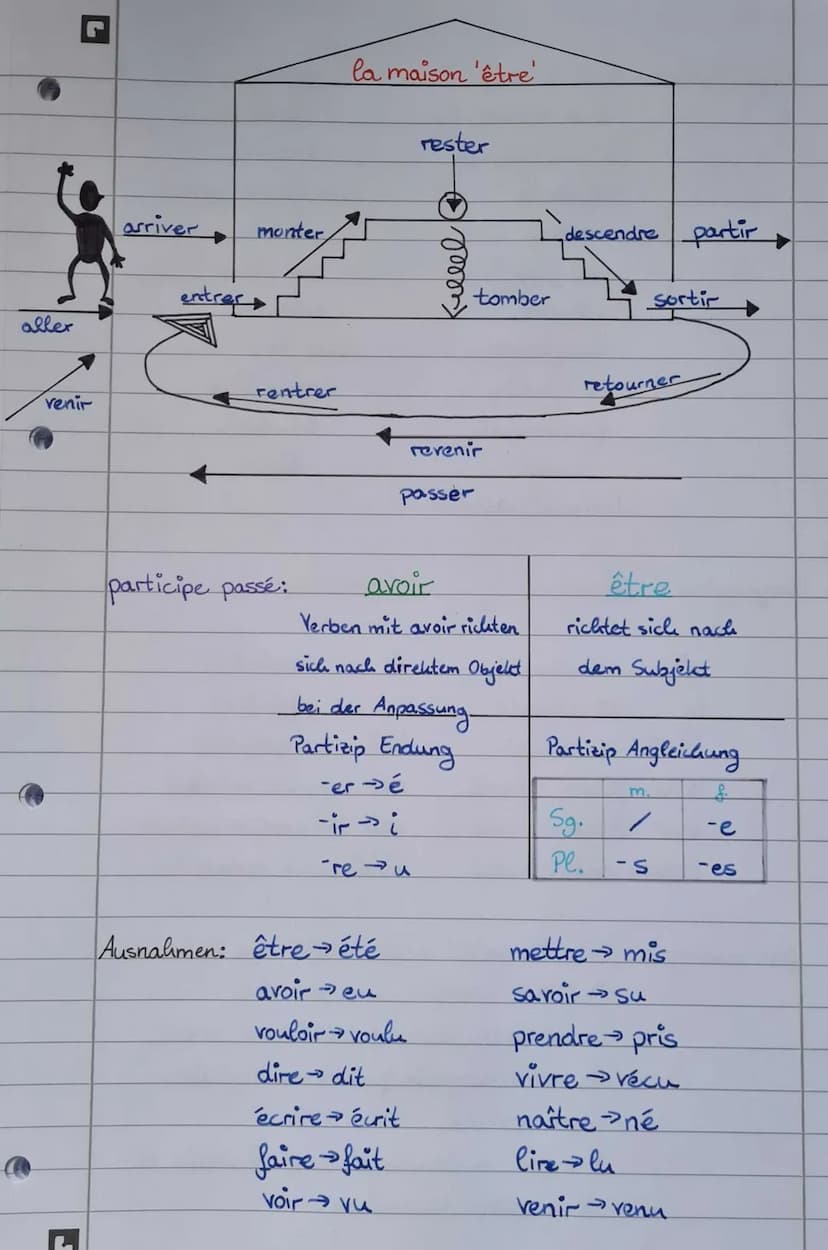 la maison 'être'
rester
arriver
monter
descendre
partir
entrer
tomber
sortir
aller
venir
rentrer
retourner
revenir
passer
participe passé: avoir être
Verben mit avoir richten richtet sich nach
sich nach direktem Objekt dem Subjekt
bei der Anpassung
Partizip Endung Partizip Angleichung
-er → é m. f.
-ir → i Sg. / -e
-re → u Pl. -s -es
Ausnahmen: être → été mettre → mis
avoir → eu savoir → su
vouloir → voulu prendre → pris
dire → dit vivre → vécu
écrire → écrit naître → né
faire → fait lire → lu
voir → vu venir → venu